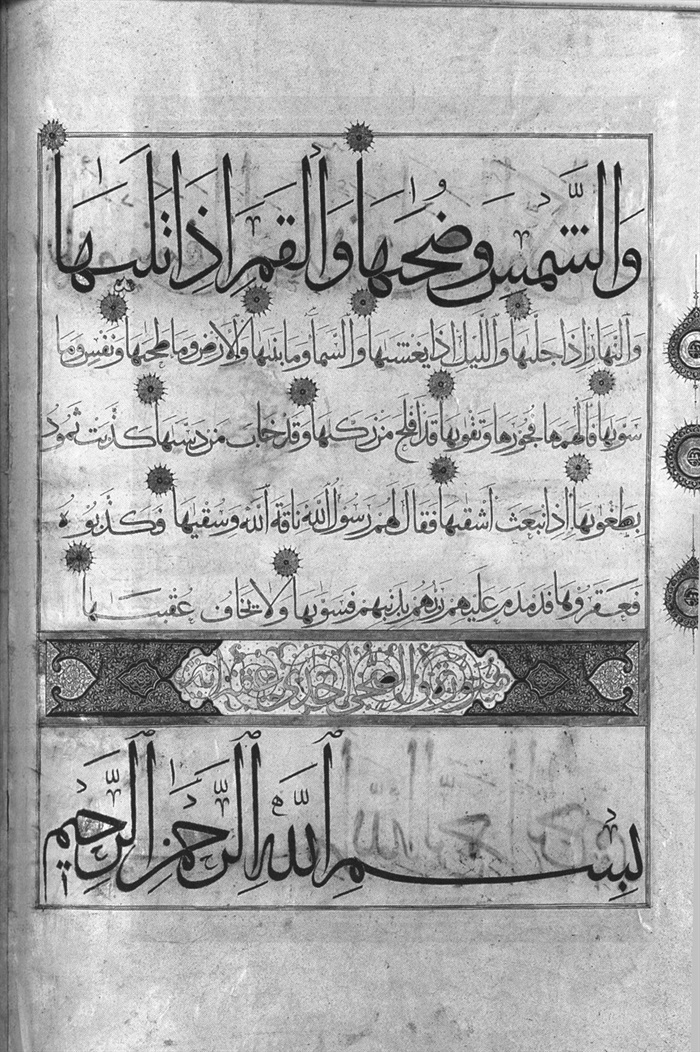 وَالشَّمْسِ وَضُحٰىهَا وَالْقَمَرِ اِذَا تَلٰىهَا
وَالنَّهَارِ اِذَا جَلّٰىهَا وَاللَّيْلِ اِذَا يَغْشٰىهَا وَالسَّمَآءِ وَمَا بَنٰىهَا وَالْاَرْضِ وَمَا طَحٰىهَا وَنَفْسٍ وَمَا
سَوّٰىهَا فَاَلْهَمَهَا فُجُورَهَا وَتَقْوٰىهَا قَدْ اَفْلَحَ مَنْ زَكّٰىهَا وَقَدْ خَابَ مَنْ دَسّٰىهَا كَذَّبَتْ ثَمُودُ
بِطَغْوٰىهَا اِذِ انْبَعَثَ اَشْقٰىهَا فَقَالَ لَهُمْ رَسُولُ اللّٰهِ نَاقَةَ اللّٰهِ وَسُقْيٰهَا فَكَذَّبُوهُ
فَعَقَرُوهَا فَدَمْدَمَ عَلَيْهِمْ رَبُّهُمْ بِذَنْبِهِمْ فَسَوّٰىهَا وَلَا يَخَافُ عُقْبٰىهَا
سورة والضحى احدى عشر اية
بِسْمِ اللّٰهِ الرَّحْمٰنِ الرَّحِيمِ